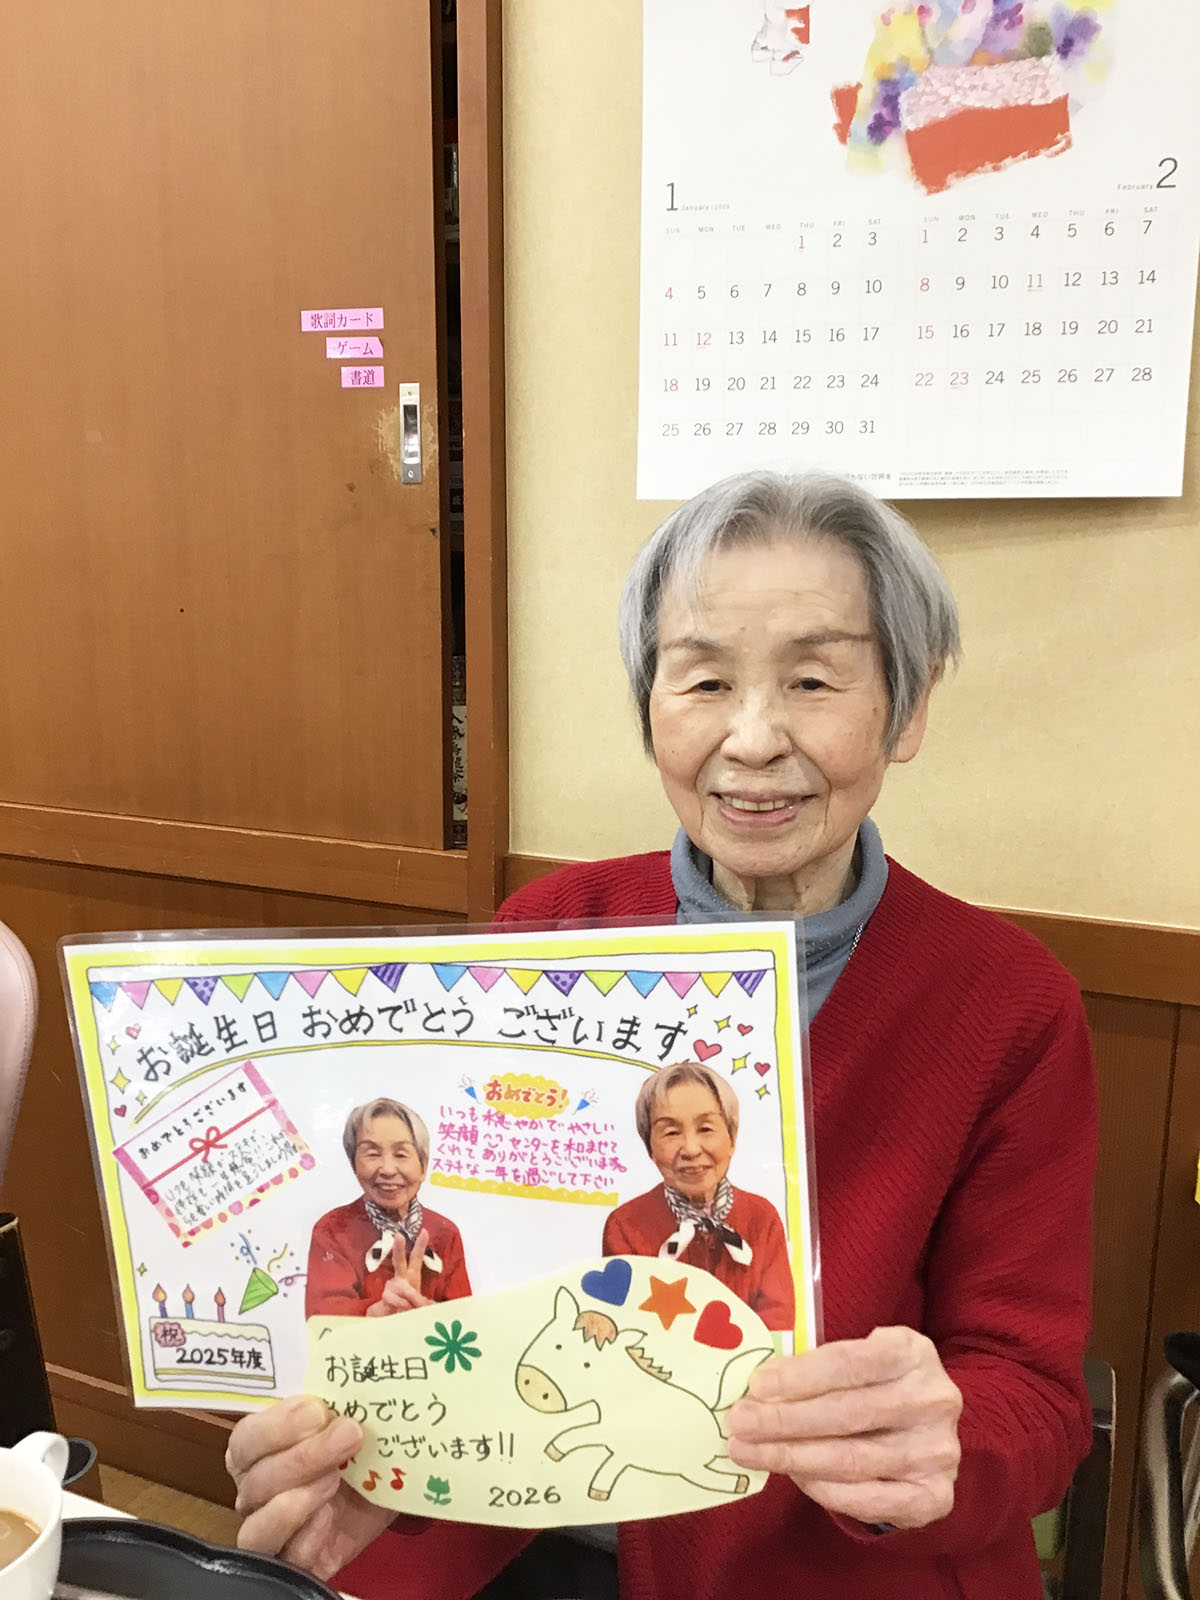 1 January / 2026
SUN MON TUE WED THU FRI SAT
1 2 3
4 5 6 7 8 9 10
11 12 13 14 15 16 17
18 19 20 21 22 23 24
25 26 27 28 29 30 31
February 2
SUN MON TUE WED THU FRI SAT
1 2 3 4 5 6 7
8 9 10 11 12 13 14
15 16 17 18 19 20 21
22 23 24 25 26 27 28
歌詞カード
ゲーム
書道
お誕生日 おめでとう ございます
おめでとうございます
おめでとう!
いつも穏やかでやさしい
笑顔で センターを和ませて
くれて ありがとうございます。
ステキな 一年を過ごして下さい
祝
2025年度
お誕生日
おめでとう
ございます!!
2026